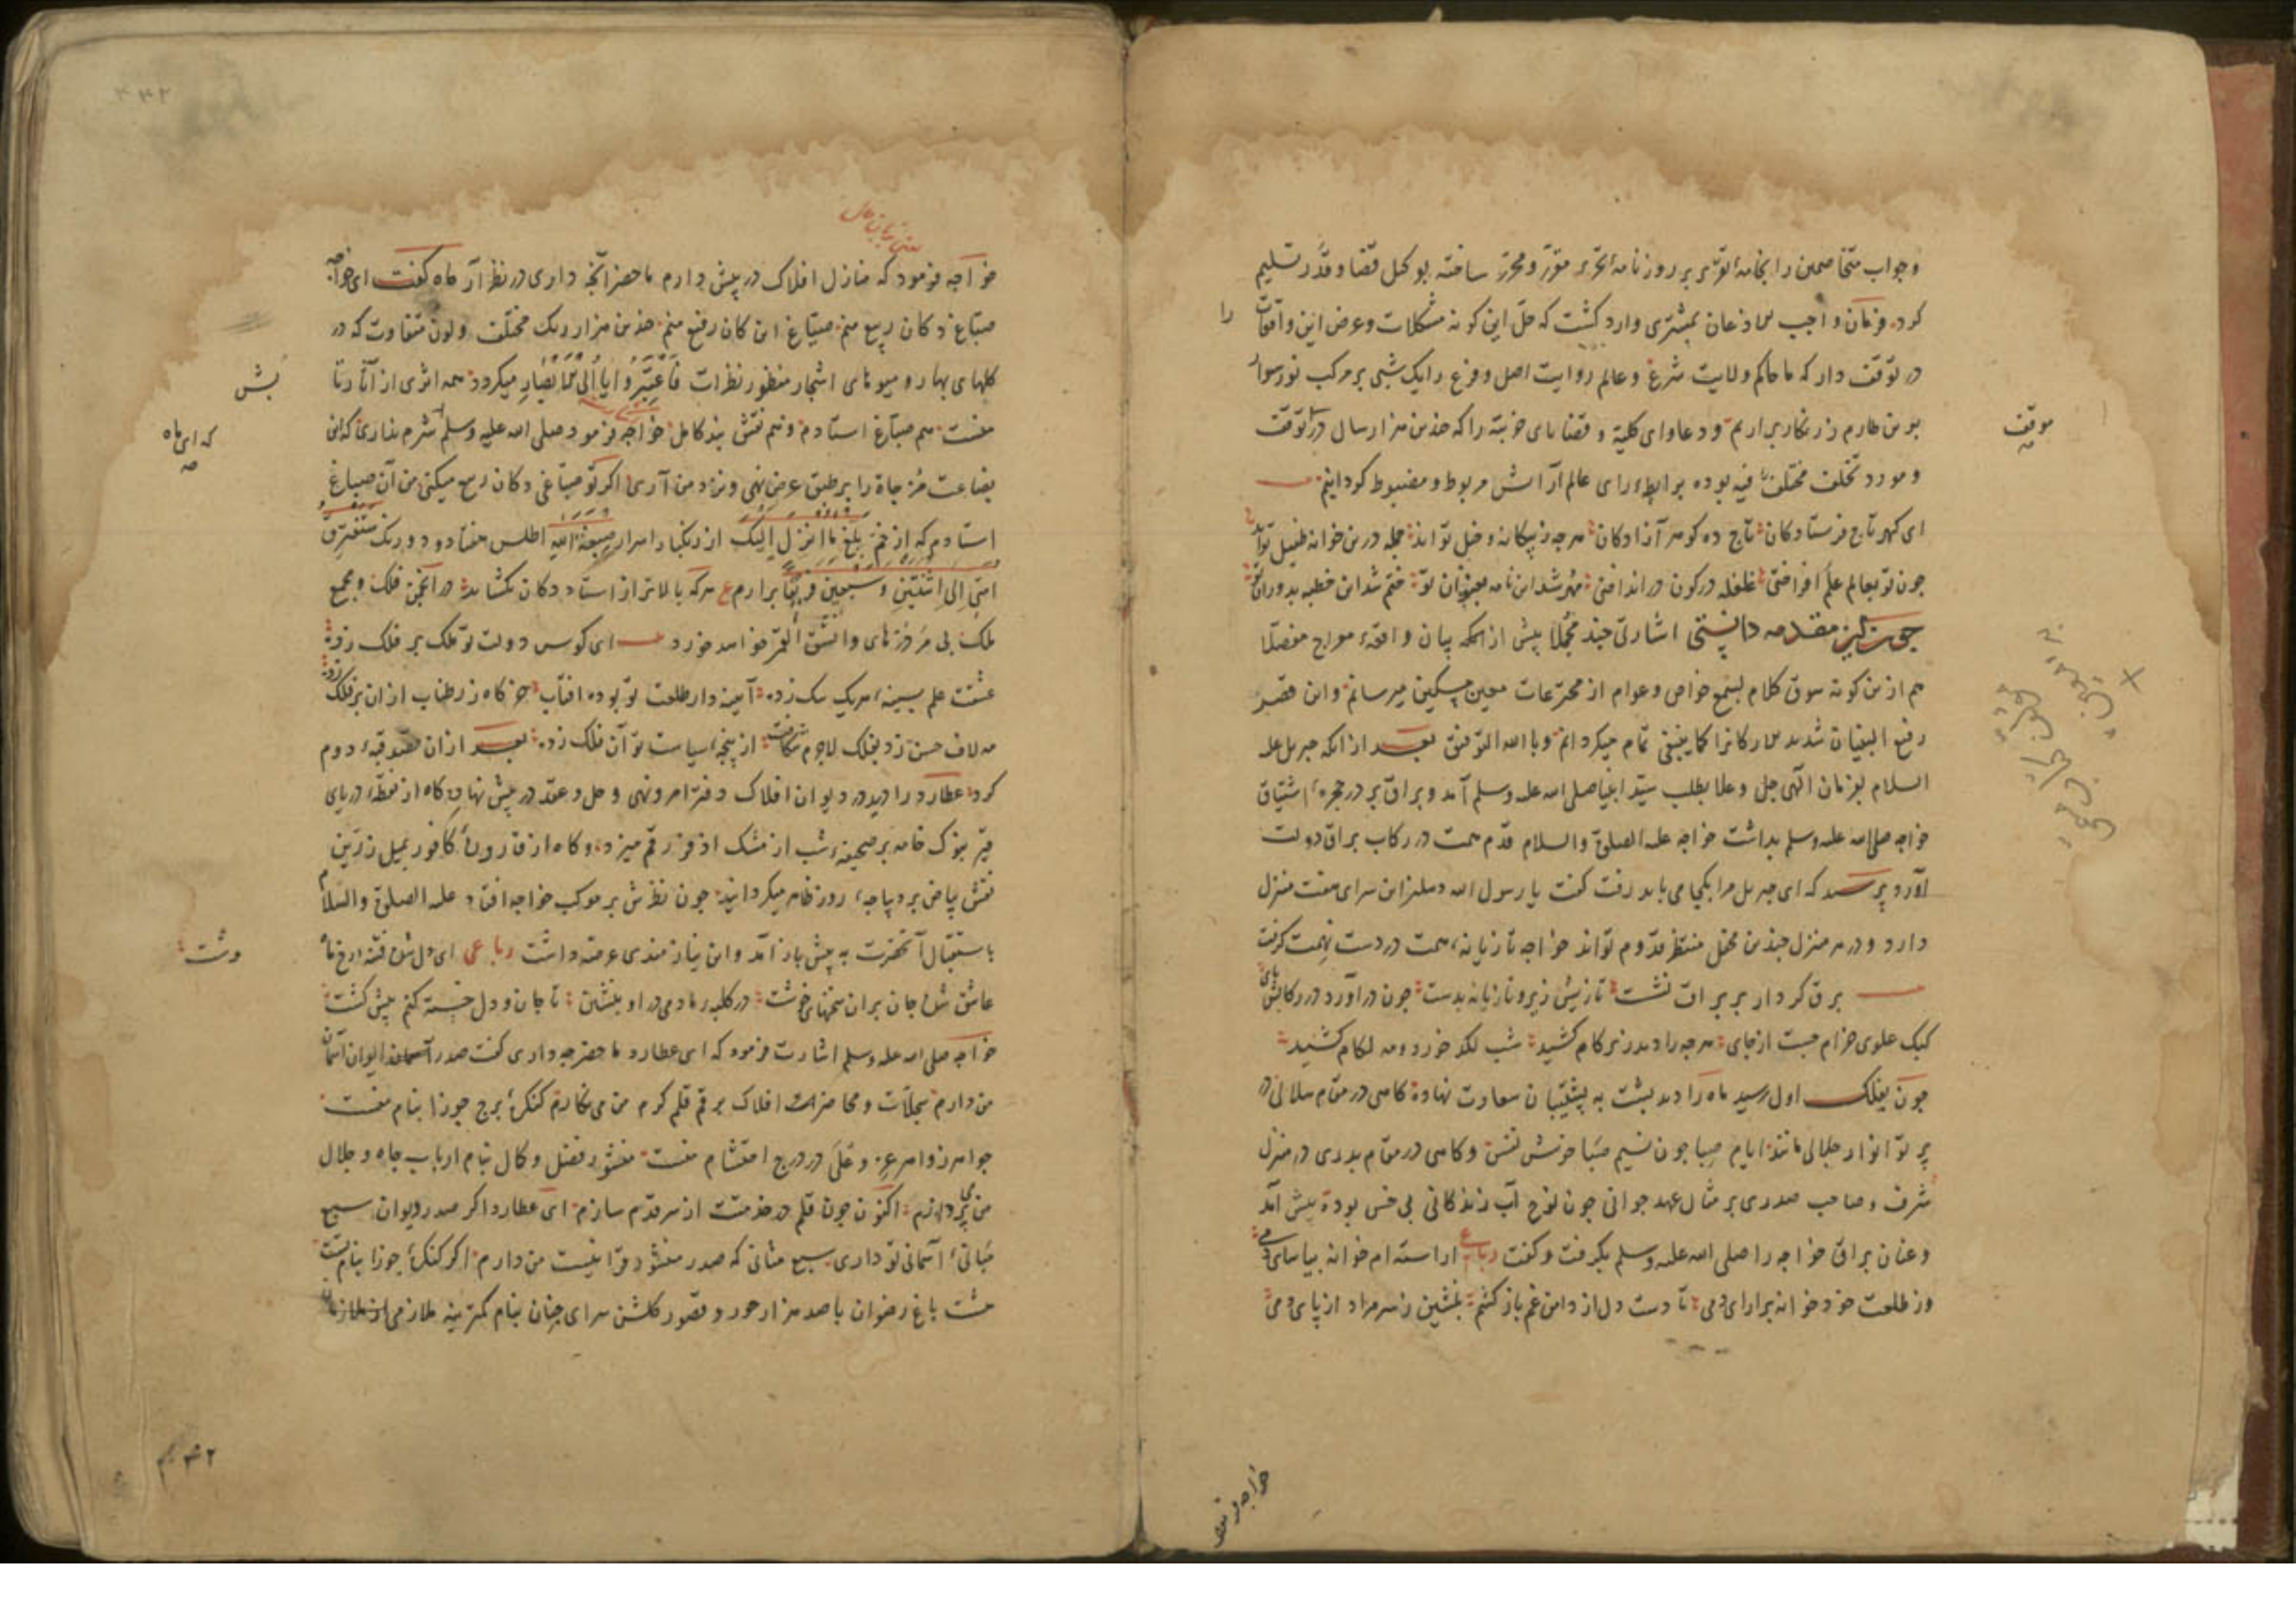 وجواب متخاصمین را بخامهٔ تقریر بر روزنامهٔ تحریر مقرر ومحرر ساخته بوکیل قضا وقدر تسلیم
کرد فرمان واجب الاذعان بمشتری وارد کشت که حل این کونه مشکلات وعرض این واقعات را
در توقف دار که ما حاکم ولایت شرع وعالم روایت اصل وفرع را یک شبی بر مرکب نور سوار
برین طارم زرنکار بر اریم ودعاوای کلیة وقضایای جزیه را که چندین هزار سال در توقف
موقف
ومورد تخلف مختلف فیه بوده برابطهٔ رای عالم آرایش مربوط ومضبوط کردانیم
ای کهر تاج فرستادکان تاج ده کوهر آزادکان هرچه ز بیکانه وخیل تواند جمله درین خانه طفیل تواند
چون تو بعالم علم افراختی غلغله در کون در انداختی مهر شد این نامه بعنوان تو ختم شد این خطبه بدوران تو
چون این مقدمه دانستی اشارتی چند مجملا پیش از انکه بیان واقعهٔ معراج مفصلا
هم ازین کونه سوق کلام بسمع خواص وعوام از مخترعات معین مسکین میرسانم واین قصر
رفیع البنیان شدید الارکانرا کما ینبغی تمام میکردانم وبالله التوفیق بعد از انکه جبریل علیه
السلام بفرمان الهی جل وعلا بطلب سید انبیا صلی الله علیه وسلم آمد وبراق بر در حجرهٔ اشتیاق
خواجه صلی الله علیه وسلم بداشت خواجه علیه الصلوة والسلام قدم همت در رکاب براق دولت
آورد پرسید که ای جبریل مرا بکجا می باید رفت کفت یا رسول الله دهلیز این سرای هفت منزل
دارد ودر هر منزل چندین محفل منتظر قدوم تواند خواجه تازیانهٔ همت در دست نهمت کرفت
برق کردار بر براق نشست تازیش زیر وتازیانه بدست چون در آورد در رکابش پای
کبک علوی خرام جست از جای هرچه را دید زیر کام کشید شب لکد خورد ومه لکام کشید
چون بفلک اول رسید ماه را دید پشت به پشتیبان سعادت نهاده کاهی در مقام هلالی در
پرتو انوار جلالی مانند ایام صبا چون نسیم صبا خوش نفس وکاهی در مقام بدری در منزل
شرف وصاحب صدری بر مثال عهد جوانی چون لوح آب زندکانی بی خس بوده پیش آمد
وعنان براق خواجه را صلی الله علیه وسلم بکرفت وکفت رباعی اراسته ام خوان بیاسای دمی
وز طلعت خود خوان برارای دمی تا دست دل از دامن غم باز کشم بنشین ز سر مراد از پای دمی
خواجه فرمود
یعنی بزبان حال
خواجه فرمود که منازل افلاک در پیش دارم ما حضر آنچه داری در نظر آر ماه کفت ای خواجه
صباغ دکان ربیع منم صباغ این کان رفیع منم چندین هزار رنک مختلف ولون متفاوت که در
کلهای بهار ومیوهای اشجار منظور نظرات فاعتبروا یا اولی الابصار میکردد همه اثری از آثار تا
بش
منست هم صباغ استادم وهم نقش بند کامل خواجه فرمود صلی الله علیه وسلم شرم نداری که این
که ای ماه
بضاعت مزجاة را بر طبق عرض نهی ونزد من آری اکر تو صباغی دکان ربیع میکنی من آن صباغ
استادم که از خم بلغ ما انزل الیک از رنکهاء اسرار صبغة الله اطلس هفتاد ودو رنک ستفترق
امتی الی اثنتین وسبعین فریقا برارم ع هرکه بالاتر از استاد دکان بکشاید در انجمن فلک ومجمع
ملک بی مر درهای وانشق القمر خواهد خورد ای کوس دولت تو ملک بر فلک زده
عشقت علم بسینهٔ هر یک بیک زده آیینه دار طلعت تو بوده افتاب خرکاه زر طناب ازان بر فلک زده
مه لاف حسن زد بفلک لاجرم شکافت از پنجهٔ سیاست تو آن فلک زده بعد ازان قصد قبهٔ دوم
کرد عطارد را دید در دیوان افلاک دفتر امر ونهی وحل وعقد در پیش نهاده کاه از نقطهٔ دریای
قیر بنوک خامه بر صحیفهٔ شب از مشک اذفر رقم میزد وکاه از قارورهٔ کافور بمیل زرین
نقش بیاض بر دیباجهٔ روز ظاهر میکردانید چون نظرش بر موکب خواجه افتاد علیه الصلوة والسلام
باستقبال آنحضرت به پیش باز آمد واین نیازمندی عرضه داشت رباعی ای دل شده فتنه رخ ماه
وشت
عاشق شده جان بران سخنهای خوشت در کلبهٔ ما دمی در او بنشین تا جان ودل خسته کنم پیش کشت
خواجه صلی الله علیه وسلم اشارت فرمود که ای عطارد ما حضر چه داری کفت صدر ایوان آسمان
من دارم سجلات ومحاضر افلاک بر قم قلم کرم من می نکارم کنکرهٔ برج جوزا بنام منست
جواهر زواهر عز وعلی در درج احتشام منست منشور فضل وکمال بنام ارباب جاه وجلال
من می پردازم اکنون چون قلم در خدمتت از سر قدم سازم ای عطارد اکر صدر دیوان سبع
مبانی آسمانی تو داری سبع مثانی که صدر منشور قرانیست من دارم اکر کنکرهٔ جوزا بنام تست
هشت باغ رضوان با صد هزار حور وقصور کلشن سرای جنان بنام کمترینه ملازمی از ملازمان
۴۳۲